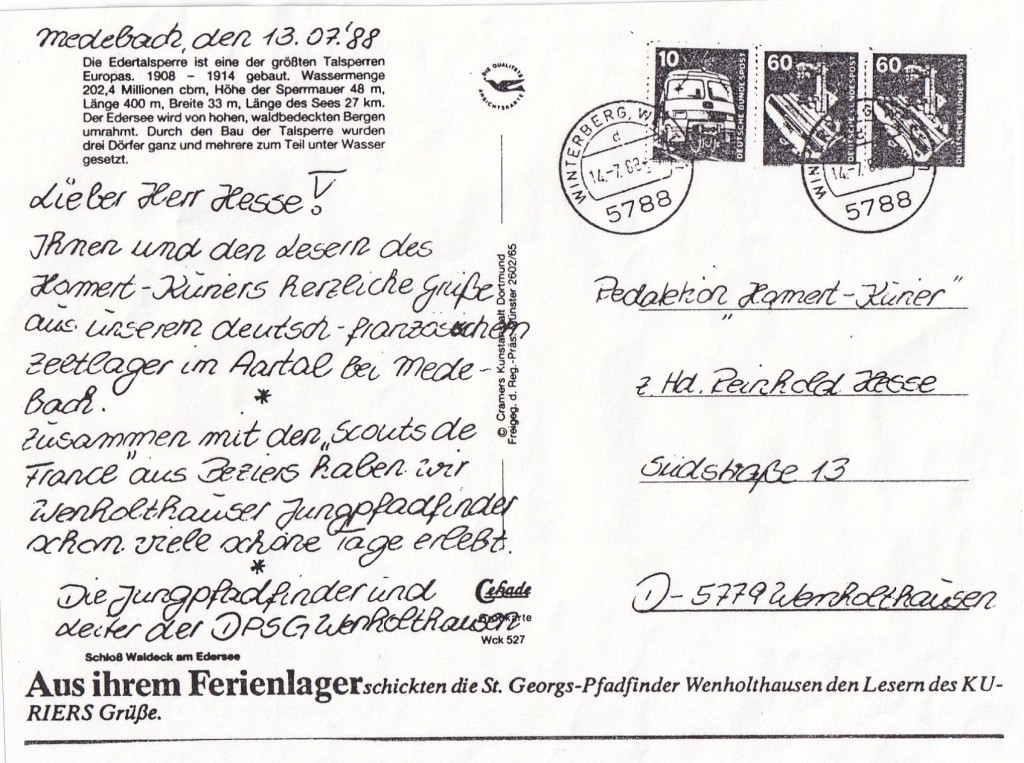 Medebach, den 13.07.'88
Die Edertalsperre ist eine der größten Talsperren
Europas. 1908 – 1914 gebaut. Wassermenge
202,4 Millionen cbm, Höhe der Sperrmauer 48 m,
Länge 400 m, Breite 33 m, Länge des Sees 27 km.
Der Edersee wird von hohen, waldbedeckten Bergen
umrahmt. Durch den Bau der Talsperre wurden
drei Dörfer ganz und mehrere zum Teil unter Wasser
gesetzt.
Lieber Herr Hesse!
Ihnen und den Lesern des
Homert-Kuriers herzliche Grüße
aus unserem deutsch-französischem
Zeltlager im Aartal bei Mede-
bach.
*
Zusammen mit den „Scouts de
France" aus Beziers haben wir
Wenholthauser Jungpfadfinder
schon viele schöne Tage erlebt.
*
Die Jungpfadfinder und
Leiter der DPSG Wenholthausen
Schloß Waldeck am Edersee
DIE QUALITÄTS
ANSICHTSKARTE
© Cramers Kunstanstalt Dortmund
Freigeg. d. Reg.-Präs. Münster 2602/65
Cekade
Wck 527
10
DEUTSCHE BUNDESPOST
60
DEUTSCHE BUNDESPOST
60
DEUTSCHE BUNDESPOST
WINTERBERG, W
d
14.-7.88
5788
WIN
14.-7.88
5788
Redaktion „Homert-Kurier"
z. Hd. Reinhold Hesse
Südstraße 13
D-5779 Wenholthausen
Aus ihrem Ferienlager schickten die St. Georgs-Pfadfinder Wenholthausen den Lesern des KU-
RIERS Grüße.